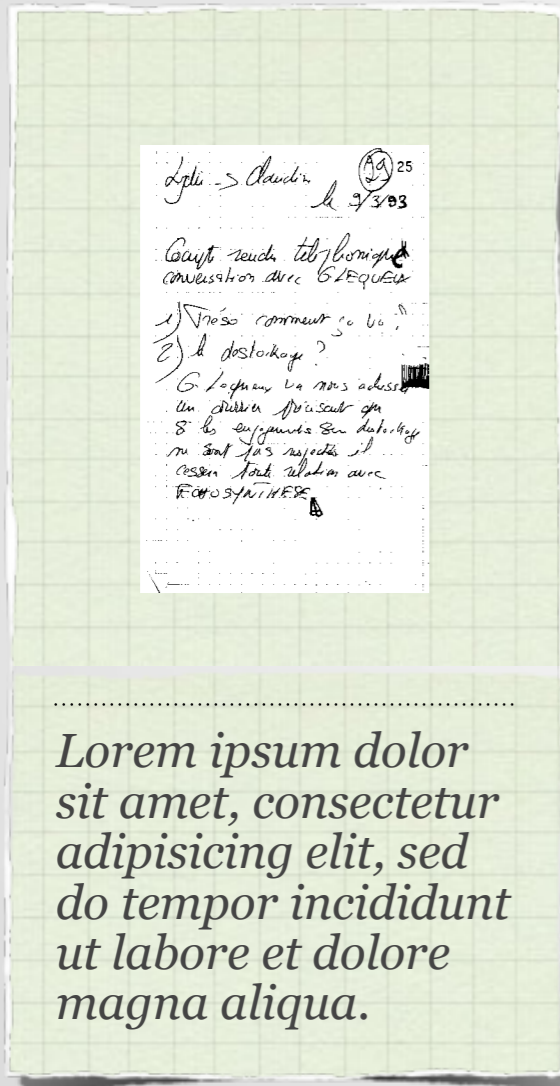 Lydie -> Claudine
25
le 9/3/93
Compt rendu téléphonique
conversation avec G LEQUEUX
1) Tréso comment ça va ?
2) le destockage ?
G. Lequeux va nous adresse
un courrier précisant que
les engagements sur destockage
ne sont pas respectés il
cessera toute relation avec
Lorem ipsum dolor
sit amet, consectetur
adipisicing elit, sed
do tempor incididunt
ut labore et dolore
magna aliqua.